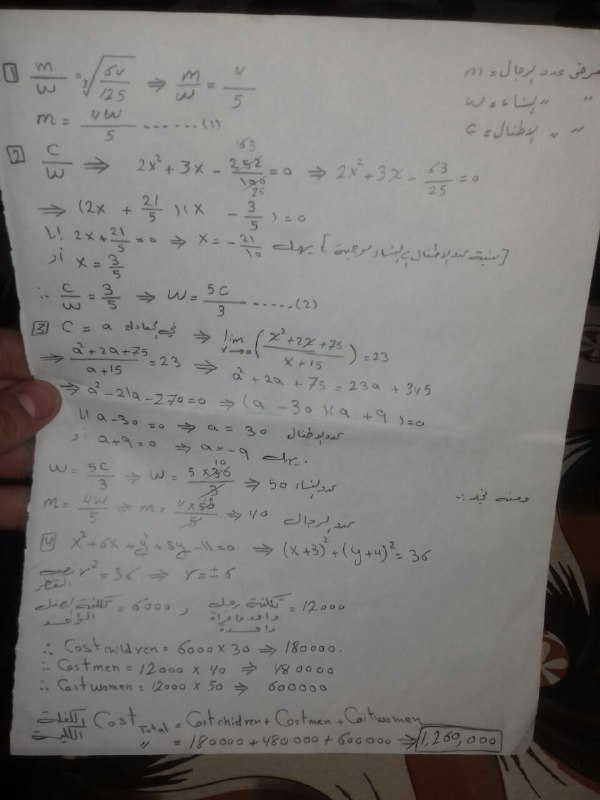 نفرض عدد الرجال = m
" " النساء = w
" " الاطفال = c
1 m/w = ³√(64/125) ⇒ m/w = 4/5
m = 4w/5 ...... (1)
2 c/w ⇒ 2x² + 3x - 252/100 = 0 ⇒ 2x² + 3x - 63/25 = 0
⇒ (2x + 21/5)(x - 3/5) = 0
اما 2x + 21/5 = 0 ⇒ x = -21/10 يهمل [نسبة عدد الاطفال الى النساء موجبة]
أو x = 3/5
∴ c/w = 3/5 ⇒ w = 5c/3 ...... (2)
3 c = a في المعادلة ⇒ lim x→a (x² + 2x + 75 / x + 15) = 23
⇒ a² + 2a + 75 / a + 15 = 23 ⇒ a² + 2a + 75 = 23a + 345
⇒ a² - 21a - 270 = 0 ⇒ (a - 30)(a + 9) = 0
اما a - 30 = 0 ⇒ a = 30 عدد الاطفال
أو a + 9 = 0 ⇒ a = -9 يهمل.
ومنه نجد :-
w = 5c/3 ⇒ w = 5×30/3 ⇒ 50 عدد النساء
m = 4w/5 ⇒ m = 4×50/5 ⇒ 40 عدد الرجال
4 x² + 6x + y² + 8y - 11 = 0 ⇒ (x+3)² + (y+4)² = 36
نصف القطر r² = 36 ⇒ r = ± 6
تكلفة الطفل الواحد = 6000 , تكلفة رجل واحد وامرأة واحدة = 12000
∴ Cost children = 6000 × 30 ⇒ 180000.
∴ Cost men = 12000 × 40 ⇒ 480000
∴ Cost women = 12000 × 50 ⇒ 600000
الكلفة الكلية Cost Total = Cost children + Cost men + Cost women
" = 180000 + 480000 + 600000 ⇒ 1,260,000